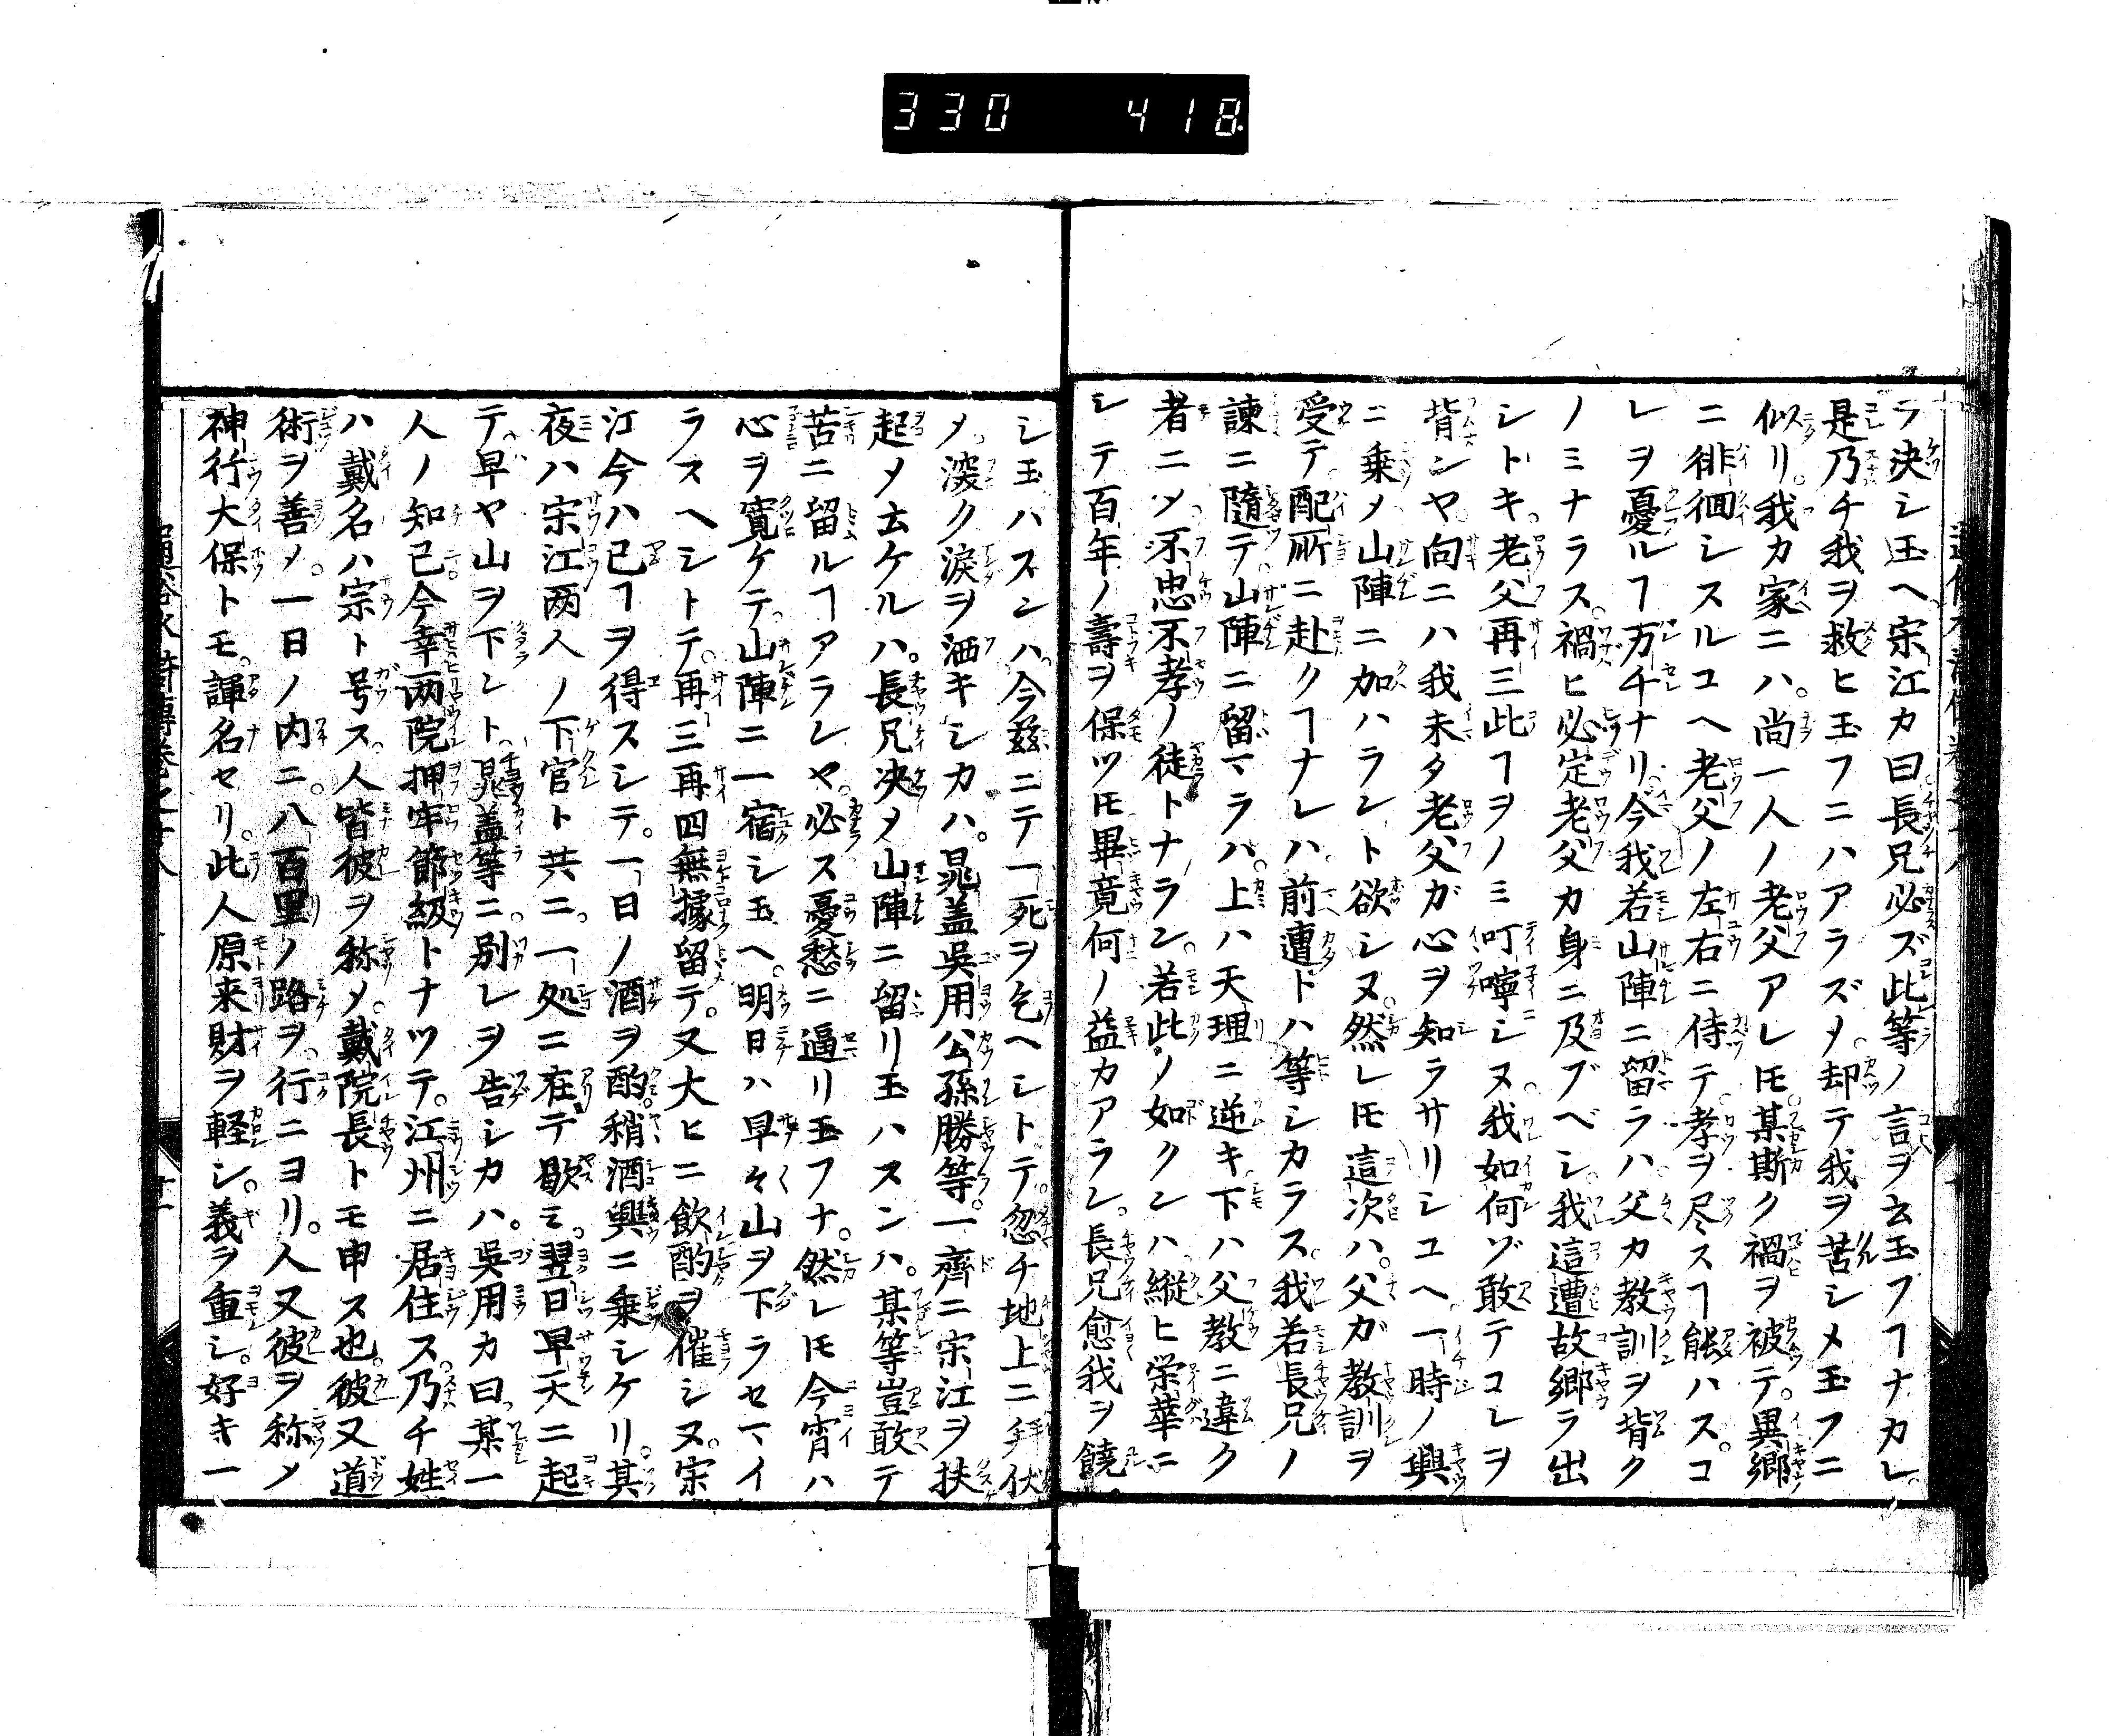 330 418
ラ決シ玉ヘ宋江カ曰長兄必ズ此等ノ言ヲ云玉フヿナカレ。
是乃チ我ヲ救ヒ玉フニハアラズメ。却テ我ヲ苦シメ玉フニ
似リ。我カ家ニハ。尚一人ノ老父アレ𪜈。某斯ク禍ヲ被テ。異郷
ニ徘徊シスルユヘ老父ノ左右ニ侍テ孝ヲ尽スヿ能ハス。コ
レヲ憂ルヿ万千ナリ。今我若山陣ニ留ラハ。父カ教訓ヲ背ク
ノミナラス。禍ヒ必定老父カ身ニ及ブベシ。我這遭故郷ラ出
シトキ。老父再三此ヿヲノミ叮嚀シヌ。我如何ゾ敢テコレヲ
背ンヤ。向ニハ我未タ老父ガ心ヲ知ラサリシユヘ。一時ノ興
ニ乗メ山陣ニ加ハラント欲シヌ。然レ𪜈這次ハ。父ガ教訓ヲ
受テ。配所ニ赴クヿナレハ。前遭トハ等シカラス。我若長兄ノ
諫ニ隨テ山陣ニ留マラハ。上ハ天理ニ逆キ。下ハ父教ニ違ク
者ニメ。不忠不孝ノ徒トナラン。若此ノ如クンハ縦ヒ栄華ニ
シテ百年ノ壽ヲ保ツ𪜈畢竟何ノ益カアラン。長兄愈我ヲ饒
シ玉ハズンハ。今茲ニテ一死ヲ乞ヘシトテ。忽チ地上ニ拜伏
メ。深ク涙ヲ洒キシカハ。晁盖吳用公孫勝等。一齊ニ宋江ヲ扶
起メ云ケルハ。長兄决メ山陣ニ留リ玉ハスンハ。某等豈敢テ
苦ニ留ルヿアランヤ。必ス憂愁ニ逼リ玉フナ。然レ𪜈今宵ハ
心ヲ寛ケテ。山陣ニ一宿シ玉ヘ。明日ハ早々山ヲ下ラセマイ
ラスヘシトテ。再三再四無據留テ。又大ヒニ飲酌ヲ催シヌ。宋
江今ハ已ヿヲ得スシテ。一日ノ酒ヲ酌。稍酒興ニ乗シケリ。其
夜ハ宋江两人ノ下官ト共ニ。一処ニ在テ歇ミ。翌日早天ニ起
テ。早ヤ山ヲ下ント。晁盖等ニ。別レヲ告シカハ。吳用カ曰。某一
人ノ知己今幸两院押牢節級トナツテ。江州ニ居住ス。乃チ姓
ハ戴名ハ宗ト号ス。人皆彼ヲ称メ。戴院長トモ申ス也。彼又道
術ヲ善メ。一日ノ内ニ。八百里ノ路ヲ。行ニヨリ。人又彼ヲ称メ
神行大保トモ。諢名セリ。此人原来財ヲ軽シ。義ヲ重シ。好キ一